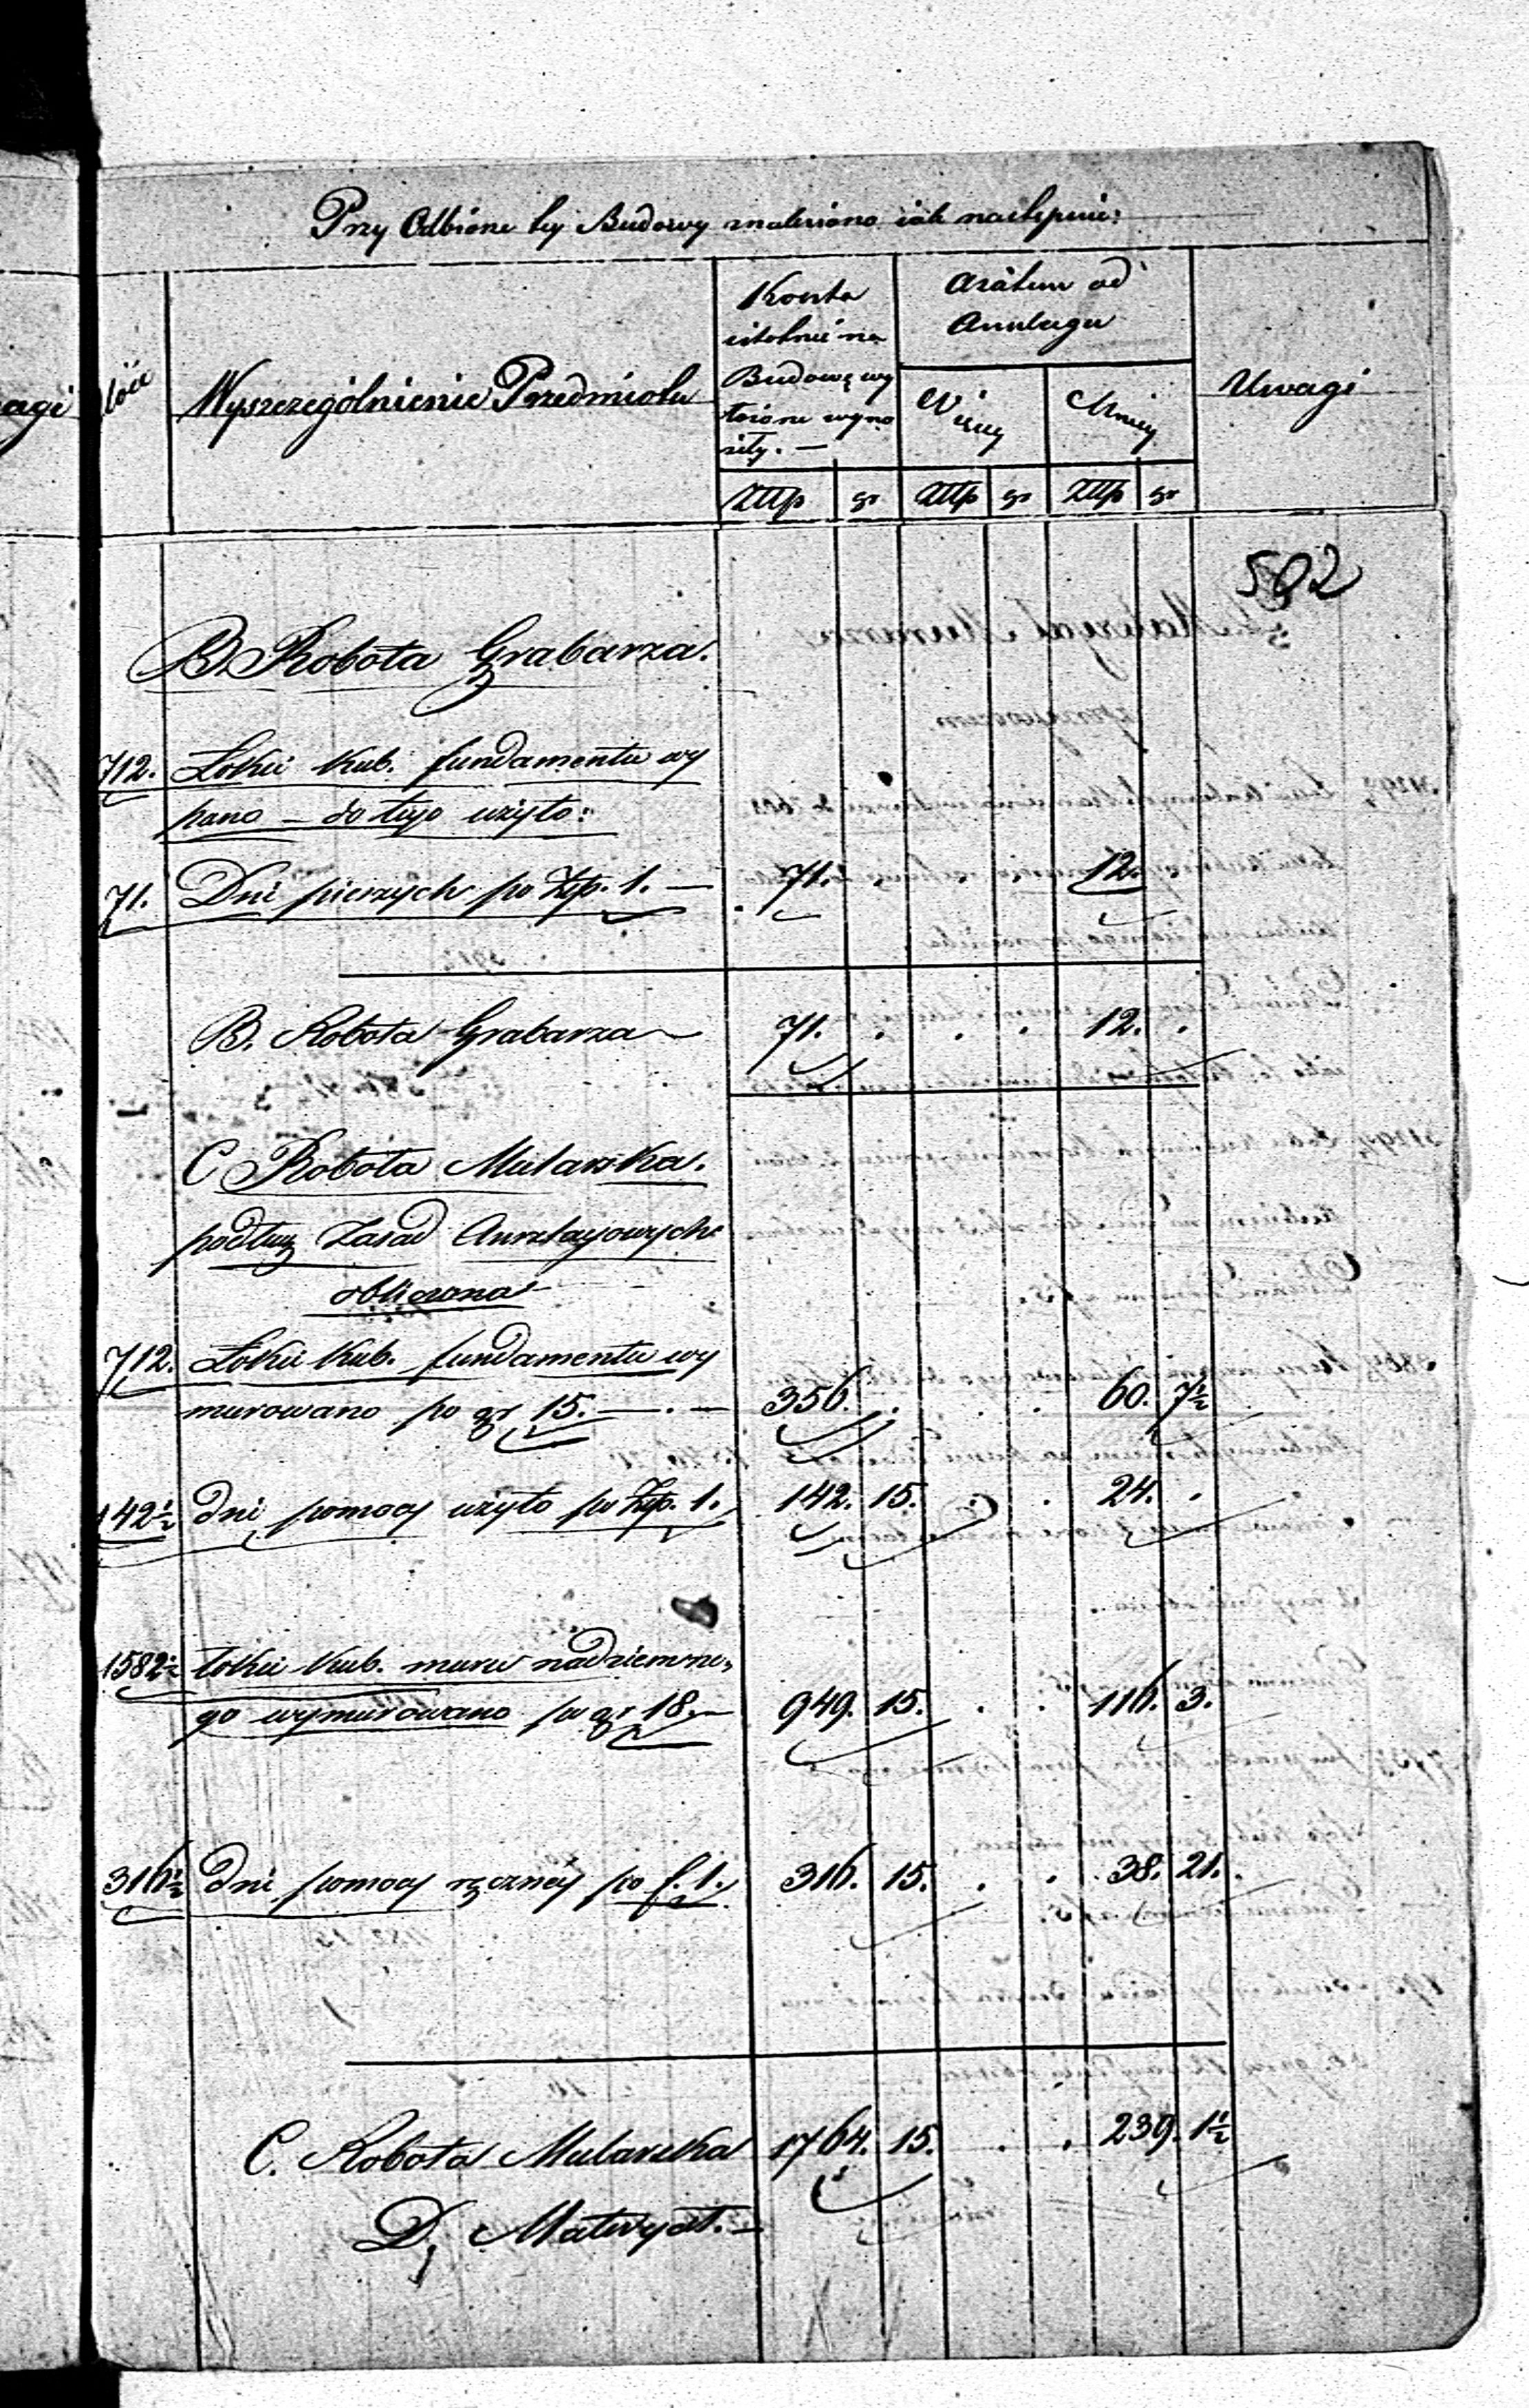 Przy Odbiorze tey Budowy znaleziono iak następuie:
agi
Ilość
Wyszczególnienie Przedmiotu
Koszta
istotnie na
Budowę wy
łożone wyno
siły. —
a zatem od
Anszlagu
Więcey
Mniey
Uwagi
Złłp gr Złłp gr Złłp gr
502
B. Robota Grabarza.
712. Łokci kub. fundamentu wy
pano — do tego użyto:
71. Dni pieszych po Złp. 1. — 71. . . . 12.
B. Robota Grabarza 71. . . . 12. .
C Robota Mularska.
podług Zasad Anszlagowych
obliczona
712. Łokci kub. fundamentu wy
murowano po gr 15. — . — 356. . . . 60. 7½
142½ dni pomocy użyto po Złp. 1. 142. 15. . . 24. .
1582½ łokci kub. muru nadziemne,
go wymurowano po gr 18. — 949. 15. . . 116. 3.
316½ dni pomocy ręczney po f. 1. 316. 15. . . 38. 21.
C. Robota Mularska 1764. 15. . . 239. 1½
D, Materyał. —